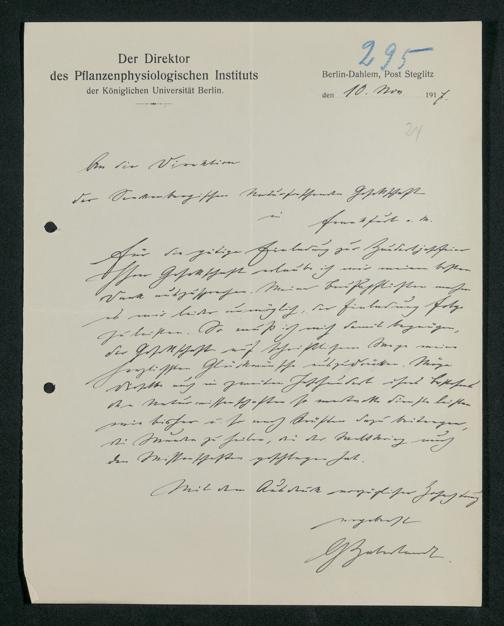 295
Der Direktor
des Pflanzenphysiologischen Instituts
der Königlichen Universität Berlin.
Berlin-Dahlem, Post Steglitz
den 10. Nov 1917.
21
An die Direktion
der Senckenbergischen Naturforschenden Gesellschaft
in Frankfurt a. M.
Für die gütige Einladung zur Jahrhundertfeier
Ihrer Gesellschaft erlaube ich mir meinen besten
Dank auszusprechen. Meine Berufspflichten machen
es mir leider unmöglich, der Einladung Folge
zu leisten. So muß ich mich damit begnügen,
der Gesellschaft auf schriftlichem Wege meine
herzlichsten Glückwünsche auszudrücken. Möge
dieselbe auch im zweiten Jahrhundert ihres Bestehens
den Naturwissenschaften so wertvolle Dienste leisten
wie bisher u. so nach Kräften dazu beitragen,
die Wunden zu heilen, die der Weltkrieg auch
den Wissenschaften geschlagen hat.
Mit dem Ausdruck vorzüglicher Hochachtung
ergebenst
G Haberlandt.